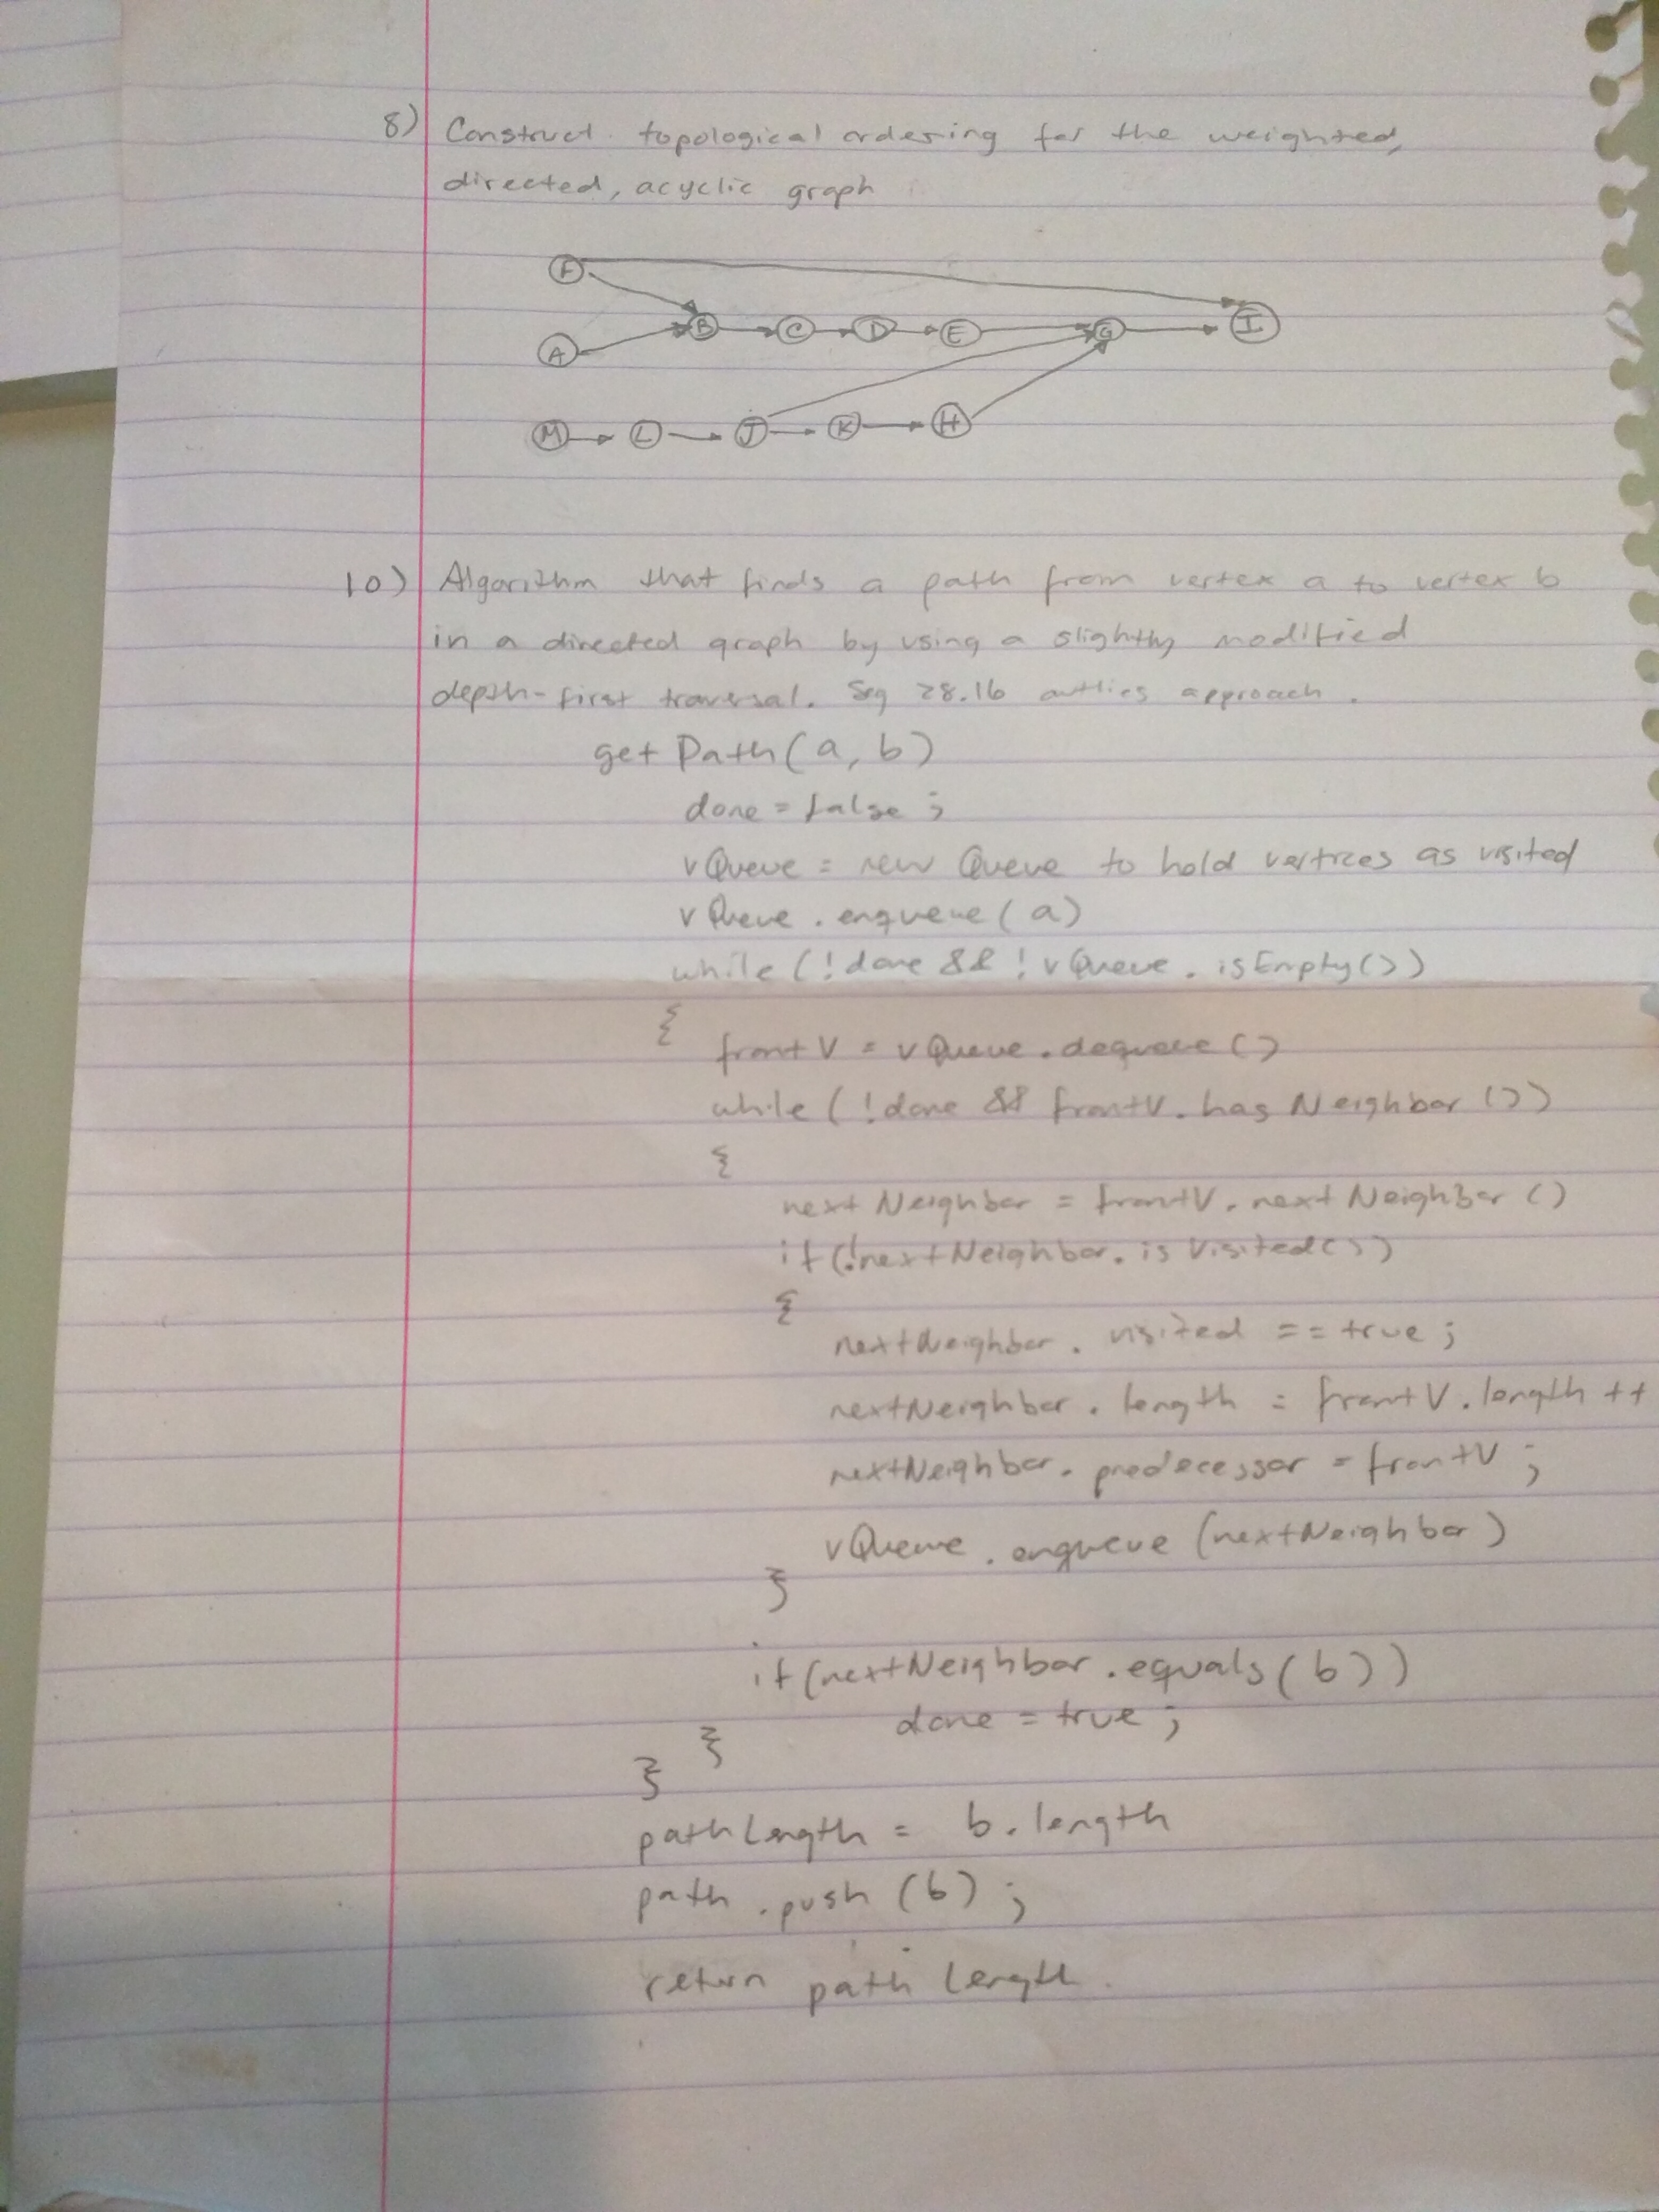 8) Construct topological ordering for the weighted,
directed, acyclic graph
F
A B C D E G I
M L J K H
10) Algorithm that finds a path from vertex a to vertex b
in a directed graph by using a slightly modified
depth-first traversal. Seg 28.16 outlies approach.
getPath(a, b)
done = false;
vQueue = new Queue to hold vertices as visited
vQueue.enqueue(a)
while (!done && !vQueue.isEmpty())
{
frontV = vQueue.dequeue()
while (!done && frontV.hasNeighbor())
{
nextNeighbor = frontV.nextNeighbor()
if(!nextNeighbor.isVisited())
{
nextNeighbor.visited == true;
nextNeighbor.length = frontV.length++
nextNeighbor.predecessor = frontV;
vQueue.enqueue(nextNeighbor)
}
if(nextNeighbor.equals(b))
done = true;
}
}
pathLength = b.length
path.push(b);
return pathLength.